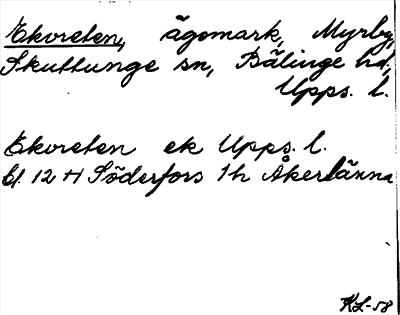 Ekoreten, ägomark, Myrby,
Skuttunge sn, Bälinge hd,
Upps. l.
Ekoreten ek Upps. l.
bl. 12 H Söderfors 1h Åkerlänna
KL-58